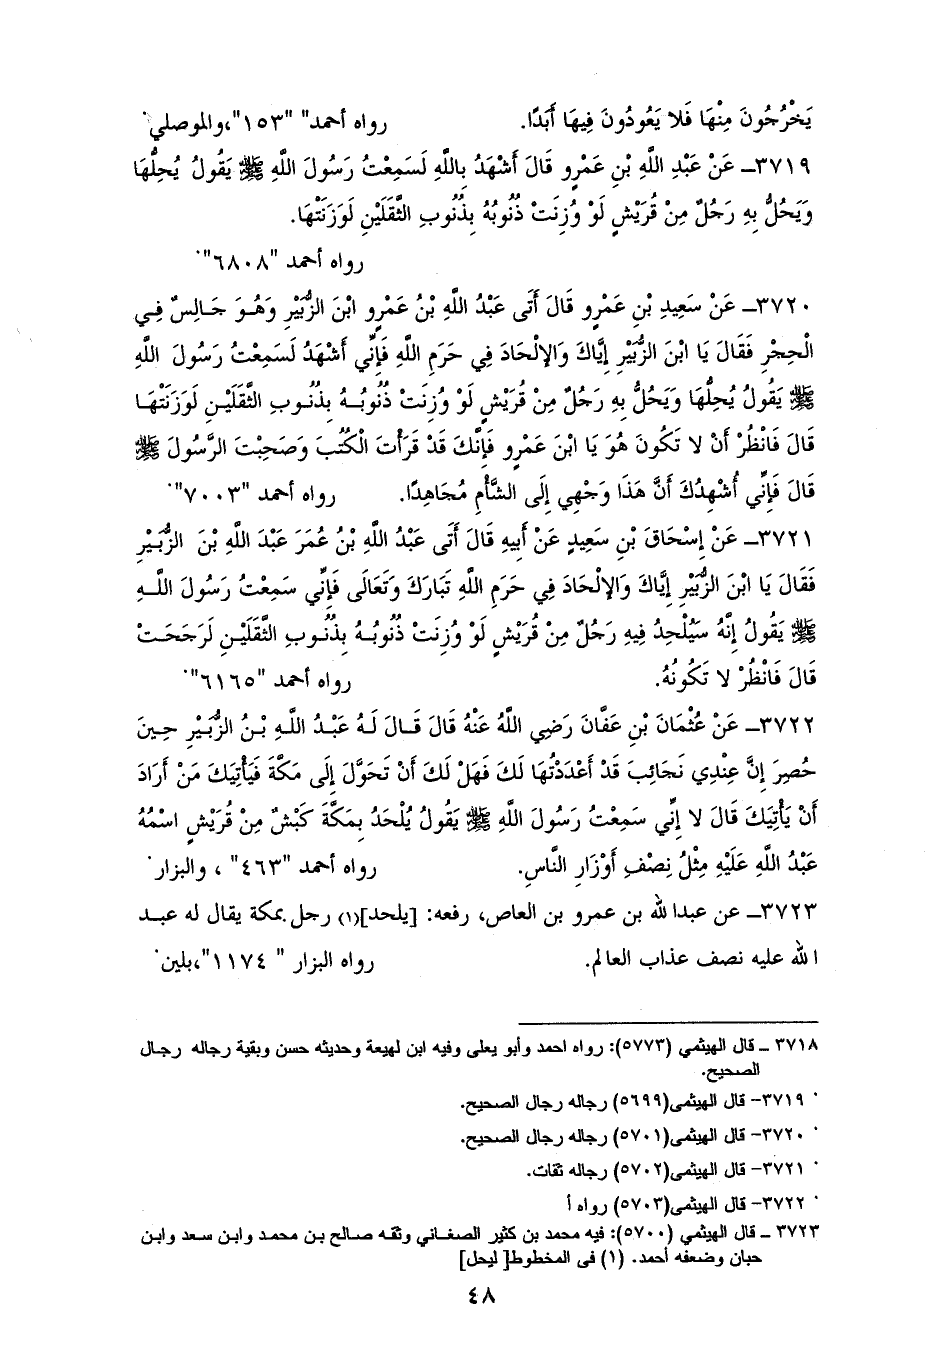 يَخْرُجُونَ مِنْهَا فَلا يَعُودُونَ فِيهَا أَبَدًا. رواه أحمد" "١٥٣"،والموصلي.
٣٧١٩ـ عَنْ عَبْدِ اللَّهِ بْنِ عَمْرٍو قَالَ أَشْهَدُ بِاللَّهِ لَسَمِعْتُ رَسُولَ اللَّهِ ﷺ يَقُولُ يُحِلُّهَا
وَيَحُلُّ بِهِ رَجُلٌ مِنْ قُرَيْشٍ لَوْ وُزِنَتْ ذُنُوبُهُ بِذُنُوبِ الثَّقَلَيْنِ لَوَزَنَتْهَا.
رواه أحمد "٦٨٠٨".
٣٧٢٠ـ عَنْ سَعِيدِ بْنِ عَمْرٍو قَالَ أَتَى عَبْدُ اللَّهِ بْنُ عَمْرٍو ابْنَ الزُّبَيْرِ وَهُوَ جَالِسٌ فِي
الْحِجْرِ فَقَالَ يَا ابْنَ الزُّبَيْرِ إِيَّاكَ وَالإِلْحَادَ فِي حَرَمِ اللَّهِ فَإِنِّي أَشْهَدُ لَسَمِعْتُ رَسُولَ اللَّهِ
ﷺ يَقُولُ يُحِلُّهَا وَيَحُلُّ بِهِ رَجُلٌ مِنْ قُرَيْشٍ لَوْ وُزِنَتْ ذُنُوبُهُ بِذُنُوبِ الثَّقَلَيْنِ لَوَزَنَتْهَا
قَالَ فَانْظُرْ أَنْ لا تَكُونَ هُوَ يَا ابْنَ عَمْرٍو فَإِنَّكَ قَدْ قَرَأْتَ الْكُتُبَ وَصَحِبْتَ الرَّسُولَ ﷺ
قَالَ فَإِنِّي أُشْهِدُكَ أَنَّ هَذَا وَجْهِي إِلَى الشَّأْمِ مُجَاهِدًا. رواه أحمد "٧٠٠٣".
٣٧٢١ـ عَنْ إِسْحَاقَ بْنِ سَعِيدٍ عَنْ أَبِيهِ قَالَ أَتَى عَبْدُ اللَّهِ بْنُ عُمَرَ عَبْدَ اللَّهِ بْنَ الزُّبَيْرِ
فَقَالَ يَا ابْنَ الزُّبَيْرِ إِيَّاكَ وَالإِلْحَادَ فِي حَرَمِ اللَّهِ تَبَارَكَ وَتَعَالَى فَإِنِّي سَمِعْتُ رَسُولَ اللَّهِ
ﷺ يَقُولُ إِنَّهُ سَيُلْحِدُ فِيهِ رَجُلٌ مِنْ قُرَيْشٍ لَوْ وُزِنَتْ ذُنُوبُهُ بِذُنُوبِ الثَّقَلَيْنِ لَرَجَحَتْ
قَالَ فَانْظُرْ لا تَكُونُهُ. رواه أحمد "٦١٦٥".
٣٧٢٢ـ عَنْ عُثْمَانَ بْنِ عَفَّانَ رَضِي اللَّهُ عَنْهُ قَالَ قَالَ لَهُ عَبْدُ اللَّهِ بْنُ الزُّبَيْرِ حِينَ
حُصِرَ إِنَّ عِنْدِي نَجَائِبَ قَدْ أَعْدَدْتُهَا لَكَ فَهَلْ لَكَ أَنْ تَحَوَّلَ إِلَى مَكَّةَ فَيَأْتِيَكَ مَنْ أَرَادَ
أَنْ يَأْتِيَكَ قَالَ لا إِنِّي سَمِعْتُ رَسُولَ اللَّهِ ﷺ يَقُولُ يُلْحَدُ بِمَكَّةَ كَبْشٌ مِنْ قُرَيْشٍ اسْمُهُ
عَبْدُ اللَّهِ عَلَيْهِ مِثْلُ نِصْفِ أَوْزَارِ النَّاسِ. رواه أحمد "٤٦٣" ، والبزار.
٣٧٢٣ـ عن عبدالله بن عمرو بن العاص، رفعه: [يلحد](١) رجل بمكة يقال له عبد
الله عليه نصف عذاب العالم. رواه البزار " ١١٧٤"،بلين.
٣٧١٨ ـ قال الهيثمي (٥٧٧٣): رواه احمد وأبو يعلى وفيه ابن لهيعة وحديثه حسن وبقية رجاله رجال
الصحيح.
٣٧١٩- قال الهيثمى(٥٦٩٩) رجاله رجال الصحيح.
٣٧٢٠- قال الهيثمى(٥٧٠١) رجاله رجال الصحيح.
٣٧٢١- قال الهيثمى(٥٧٠٢) رجاله ثقات.
٣٧٢٢- قال الهيثمى(٥٧٠٣) رواه أ
٣٧٢٣ ـ قال الهيثمي (٥٧٠٠): فيه محمد بن كثير الصغاني وثقه صالح بن محمد وابن سعد وابن
حبان وضعفه أحمد. (١) فى المخطوط[ ليحل]
٤٨